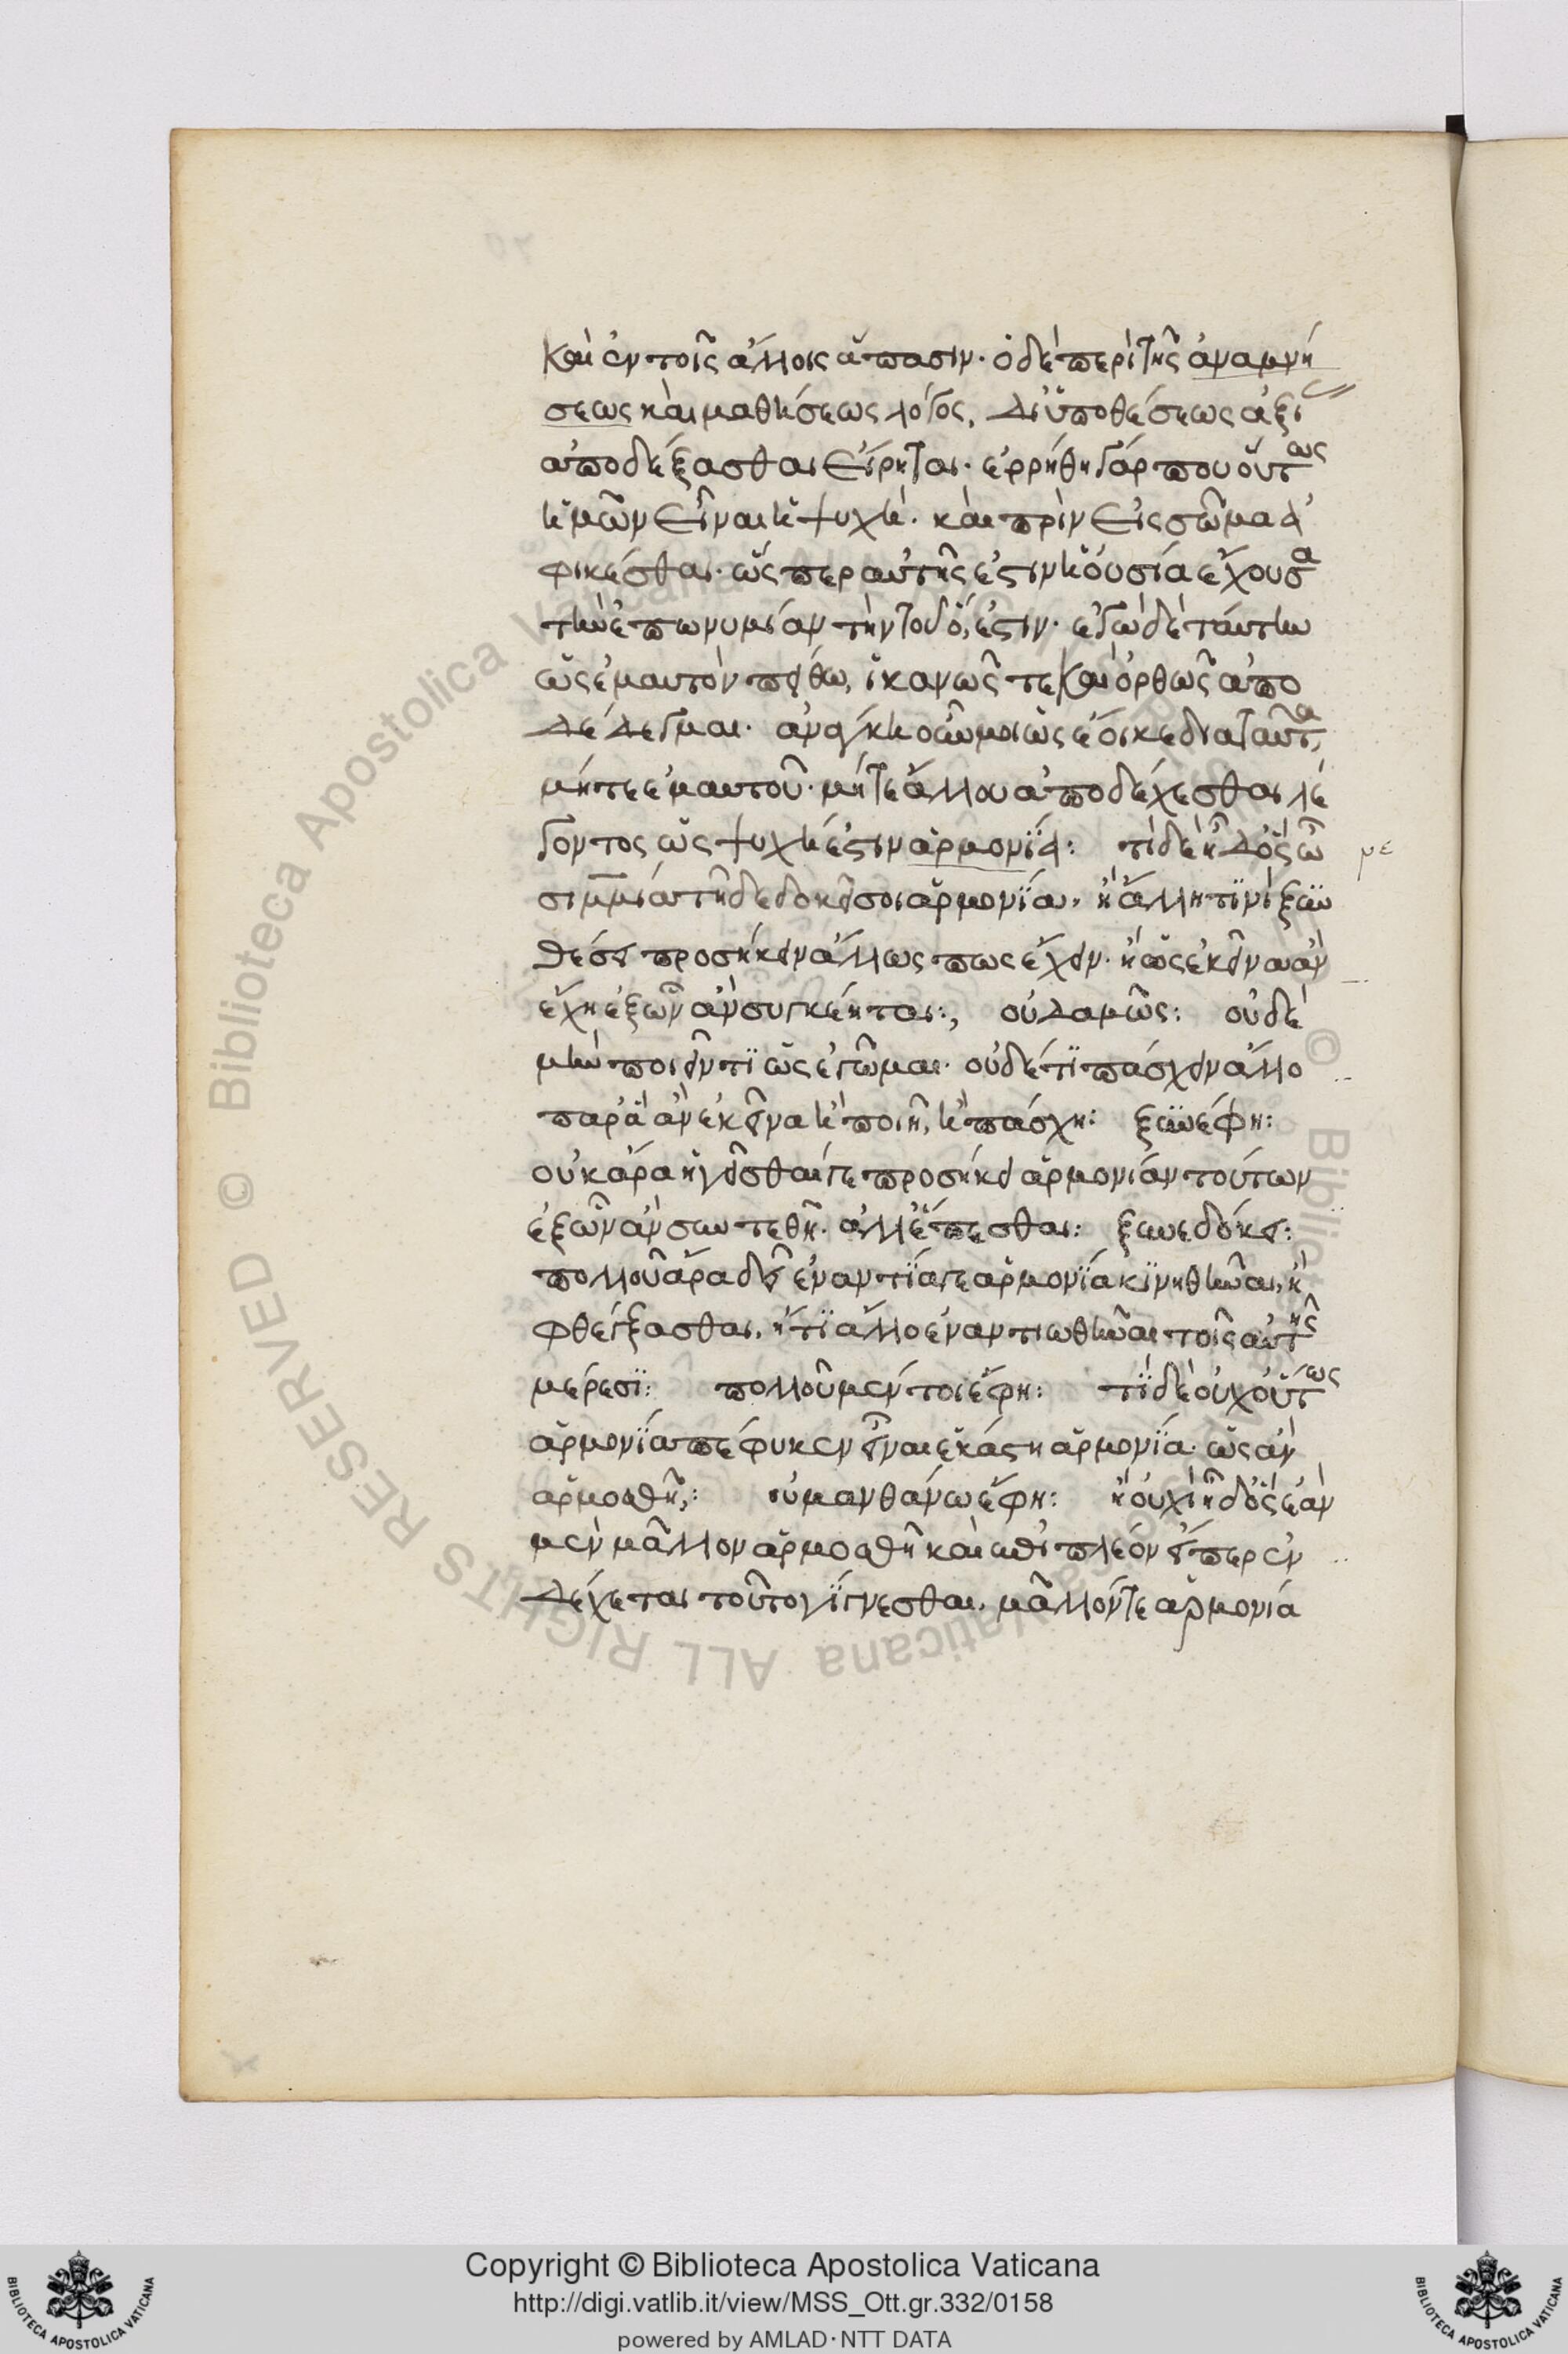 καὶ ἐν τοῖς ἄλλοις ἅπασιν· ὁ δὲ περὶ τῆς ἀναμνή
σεως καὶ μαθήσεως λόγος, δι ὑποθέσεως ἀξί
ἀποδέξασθαι εἴρηται· ἐρρήθη γάρ που οὕτως
ἡμῶν εἶναι ἡ ψυχὴ· καὶ πρὶν εἰς σῶμα ἀ
φικέσθαι· ὥσπερ αὐτῆς ἐστιν ἡ οὐσία ἔχουσα
τὴν ἐπωνυμίαν τὴν τοῦ ὅ, ἐστιν· ἐγὼ δὲ ταύτην
ὡς ἐμαυτὸν πείθω, ἱκανῶς τε καὶ ὀρθῶς ἀπο
δέδεγμαι· ἀνάγκη οὖν μοι ὡς ἔοικε διὰ ταῦτα,
μήτε ἐμαυτοῦ· μήτε ἄλλου ἀποδέχεσθαι λέ
γοντος ὡς ψυχή ἐστιν ἁρμονία: τί δὲ ἦ δ ὃς ὦ
με
σιμμία τῇδε δοκεῖ σοι ἁρμονία, ἢ ἄλλη τινὶ ξυν
θέσει προσήκειν ἄλλως πως ἔχειν· ἢ ὡς ἐκεῖνα ἂν
ἔχη ἐξ ὧν ἂν συγκέηται:, οὐδαμῶς: οὐδὲ
μὴν ποιεῖν τι ὡς ἐγῶμαι· οὐδέ τι πάσχειν ἄλλο
παρ ἃ ἂν ἐκεῖνα ἢ ποιῆ, ἢ πάσχη: ξυνέφη:
οὐκ ἄρα ἡγεῖσθαί γε προσήκει ἁρμονίαν τούτων
ἐξ ὧν ἂν συντεθῆ· ἀλλ ἕπεσθαι: ξυνεδόκει:
πολλοῦ ἄρα δεῖ ἐναντία γε ἁρμονία κινηθῆναι, ἢ
φθέγξασθαι, ἤ τι ἄλλο ἐναντιωθῆναι τοῖς αὑτῆς
μέρεσι: πολλοῦ μέν τοι ἔφη: τί δὲ οὐχ οὕτως
ἁρμονία πέφυκεν εἶναι ἑκάστη ἁρμονία· ὡς ἂν
ἁρμοσθῆ,: οὐ μανθάνω ἔφη: ἢ οὐχὶ ἦ δ ὃς ἐὰν
μὲν μᾶλλον ἁρμοσθῆ καὶ ἐπὶ πλέον εἴπερ ἐν
δέχεται τοῦτο γίγνεσθαι, μᾶλλόν τε ἁρμονία
Copyright © Biblioteca Apostolica Vaticana
http://digi.vatlib.it/view/MSS_Ott.gr.332/0158
powered by AMLAD·NTT DATA